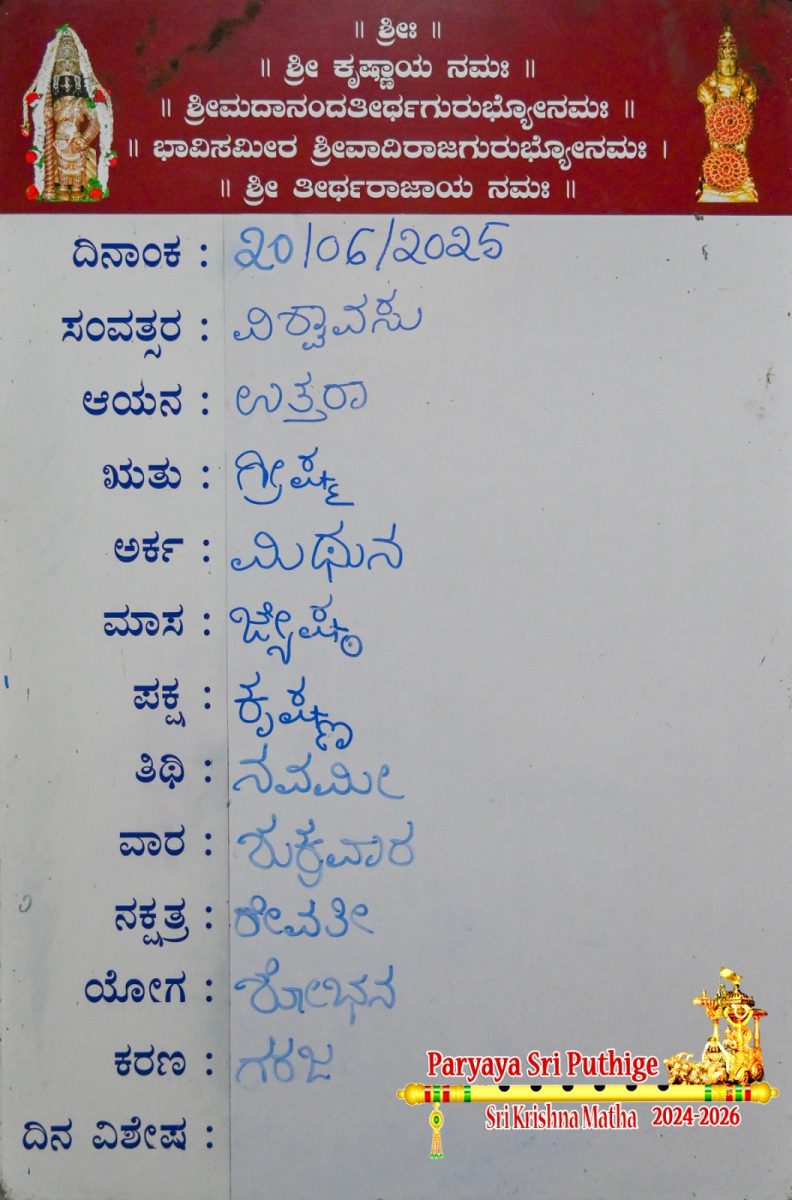 ॥ ಶ್ರೀಃ ॥
॥ ಶ್ರೀ ಕೃಷ್ಣಾಯ ನಮಃ ॥
॥ ಶ್ರೀಮದಾನಂದತೀರ್ಥಗುರುಭ್ಯೋನಮಃ ॥
॥ ಭಾವಿಸಮೀರ ಶ್ರೀವಾದಿರಾಜಗುರುಭ್ಯೋನಮಃ ।
॥ ಶ್ರೀ ತೀರ್ಥರಾಜಾಯ ನಮಃ ॥
ದಿನಾಂಕ : 20/06/2025
ಸಂವತ್ಸರ : ವಿಶ್ವಾವಸು
ಆಯನ : ಉತ್ತರಾ
ಋತು : ಗ್ರೀಷ್ಮ
ಅರ್ಕ : ಮಿಥುನ
ಮಾಸ : ಜ್ಯೇಷ್ಠ
ಪಕ್ಷ : ಕೃಷ್ಣ
ತಿಥಿ : ನವಮೀ
ವಾರ : ಶುಕ್ರವಾರ
ನಕ್ಷತ್ರ : ರೇವತೀ
ಯೋಗ : ಶೋಭನ
ಕರಣ : ಗರಜ
ದಿನ ವಿಶೇಷ :
Paryaya Sri Puthige
Sri Krishna Matha 2024-2026